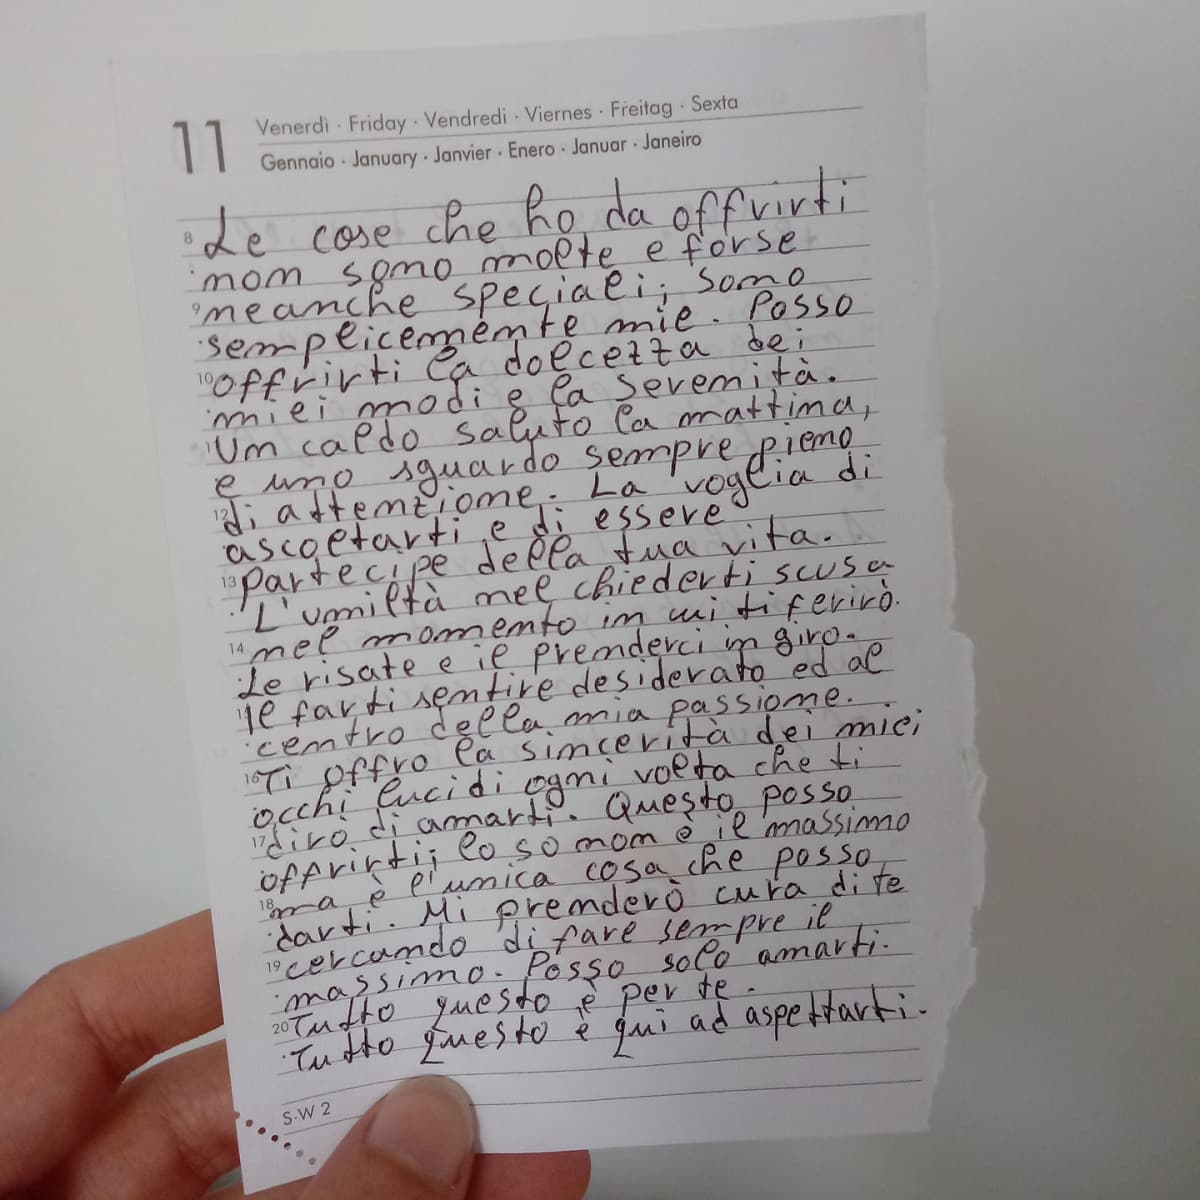 11
Venerdì · Friday · Vendredi · Viernes · Freitag · Sexta
Gennaio · January · Janvier · Enero · Januar · Janeiro
8 Le cose che ho da offrirti
non sono molte e forse
9 neanche speciali; sono
semplicemente mie. Posso
10 offrirti la dolcezza dei
miei modi e la serenità.
11 Un caldo saluto la mattina,
e uno sguardo sempre pieno
12 di attenzione. La voglia di
ascoltarti e di essere
13 partecipe della tua vita.
L'umiltà nel chiederti scusa
14 nel momento in cui ti ferirò.
Le risate e il prenderci in giro.
15 Il farti sentire desiderato ed al
centro della mia passione.
16 Ti offro la sincerità dei miei
occhi lucidi ogni volta che ti
17 dirò di amarti. Questo posso
offrirti; lo so non è il massimo
18 ma è l'unica cosa che posso
darti. Mi prenderò cura di te
19 cercando di fare sempre il
massimo. Posso solo amarti.
20 Tutto questo è per te.
Tutto questo è qui ad aspettarti.
S·W 2